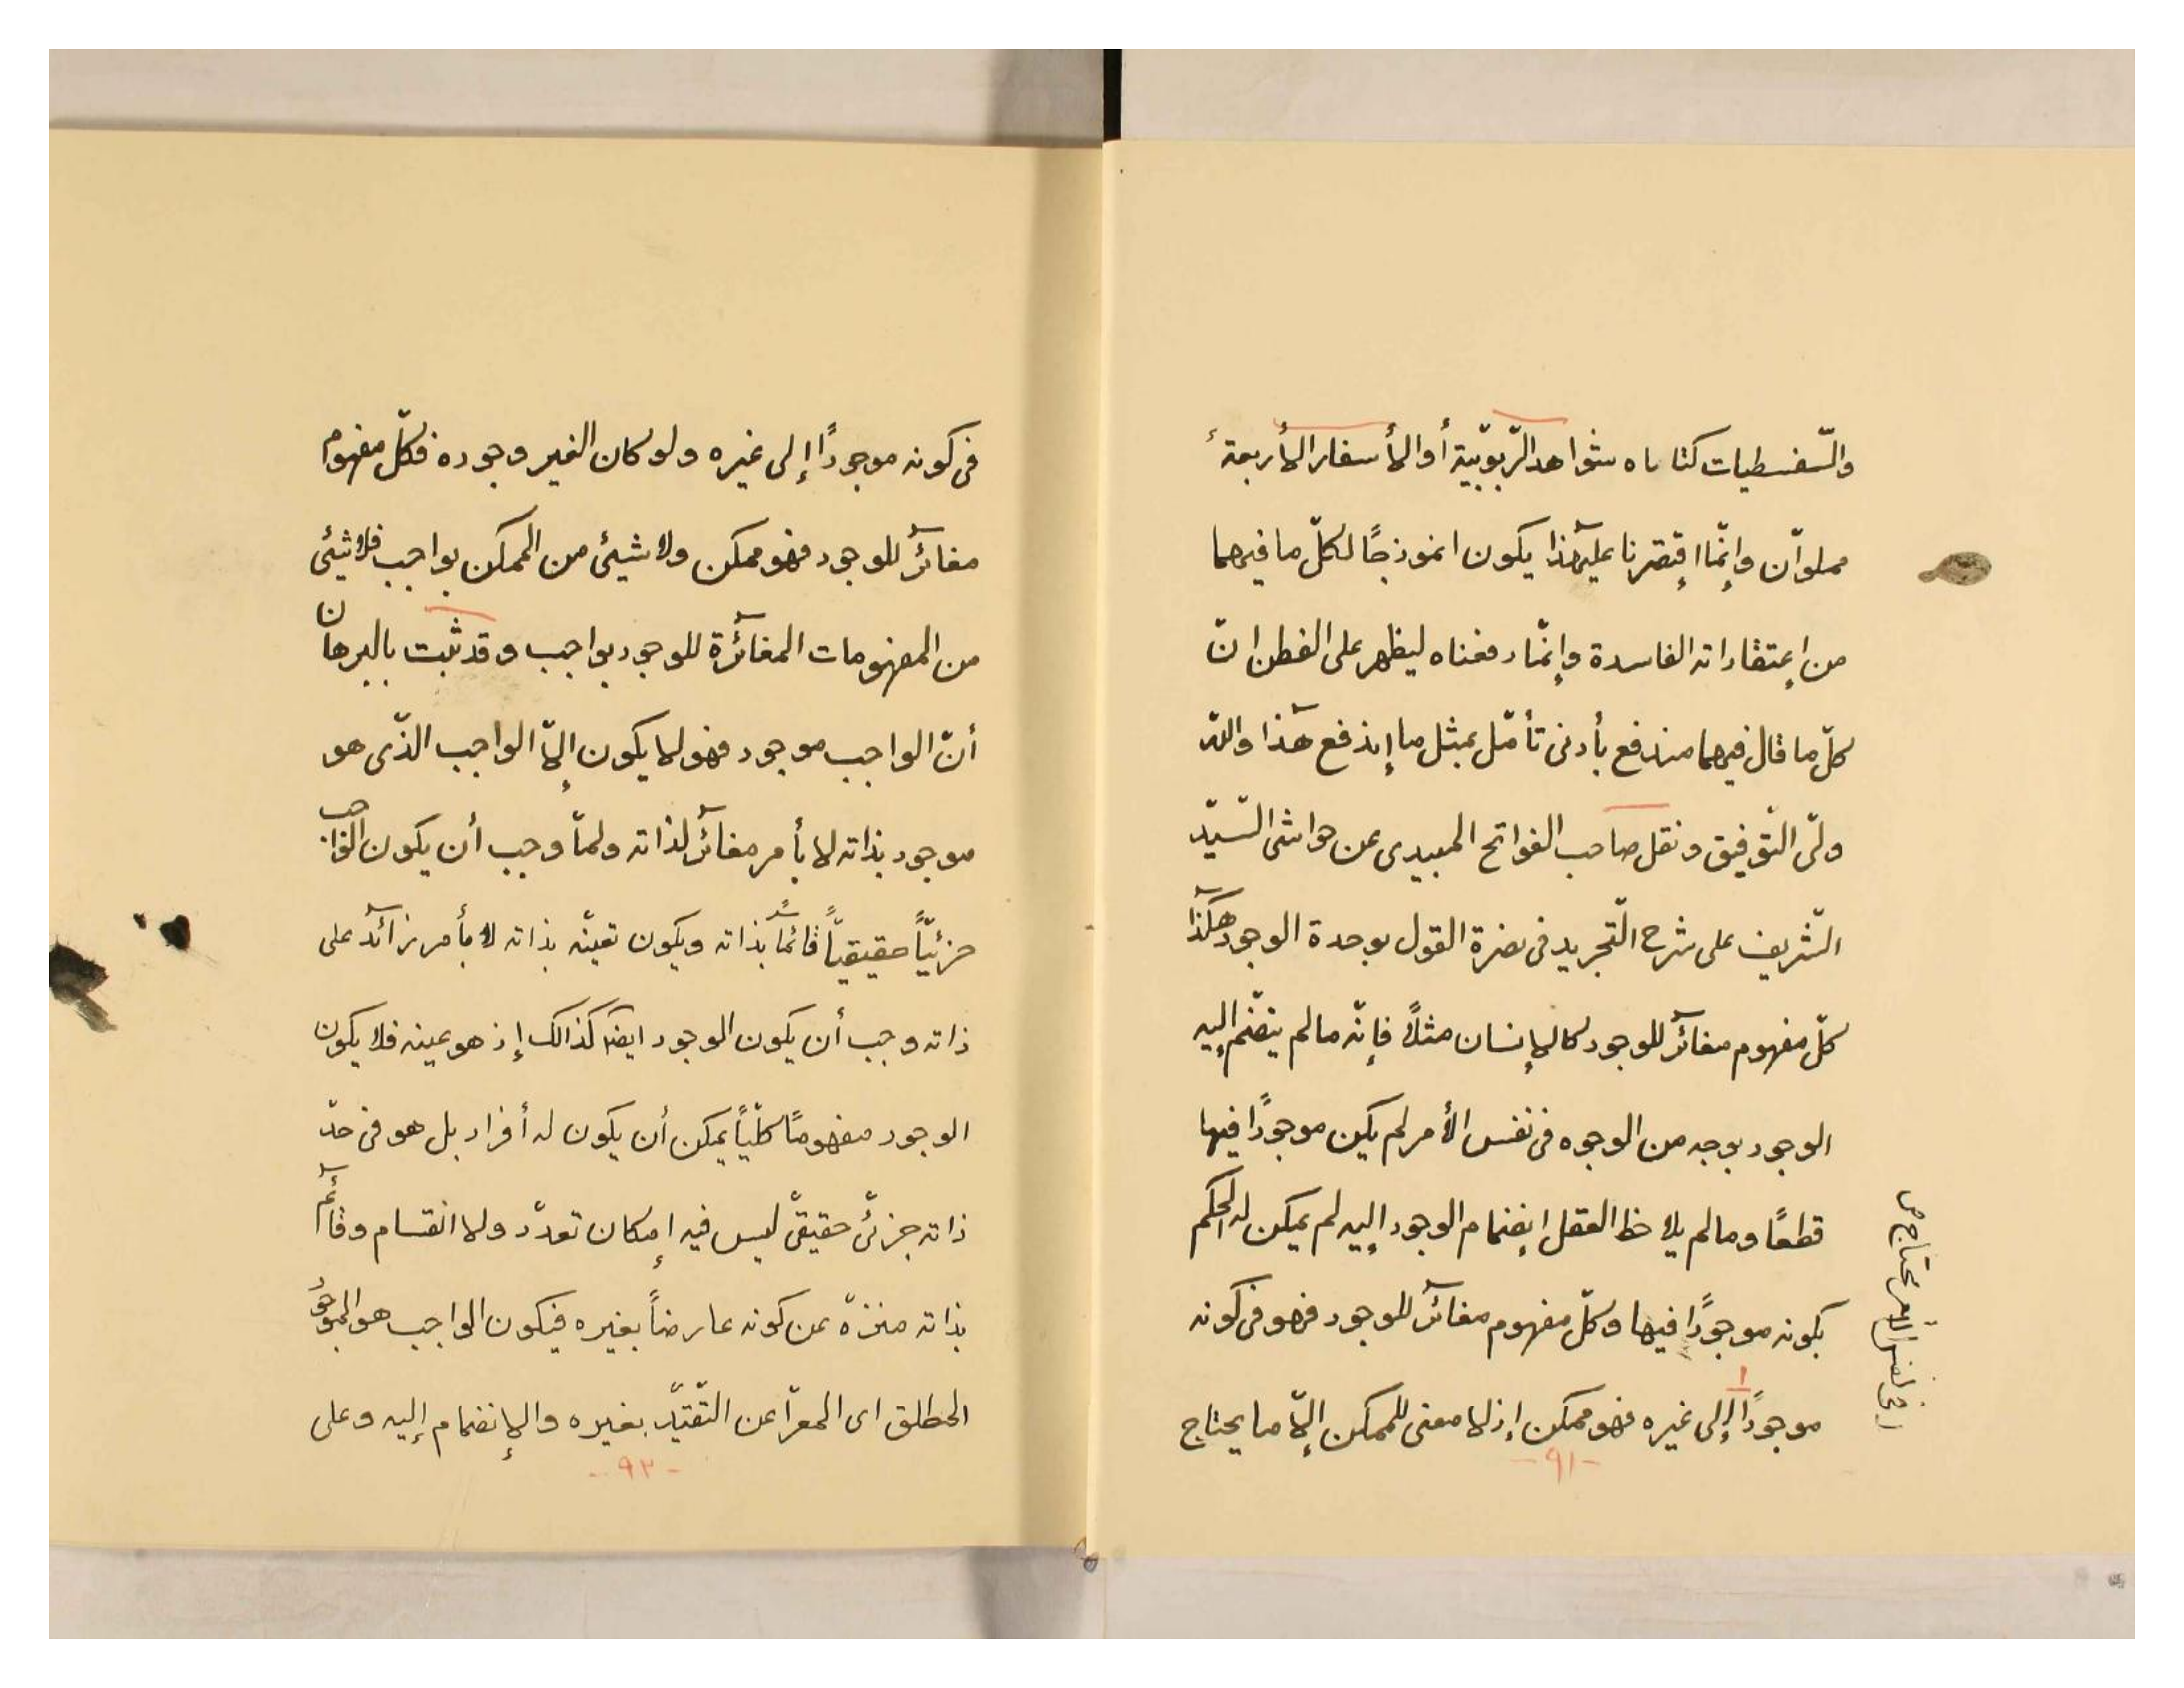 والسّفسطيات كتاباه شواهد الرّبوبّية أو الأسفار الأربعة
مملوآن وإنّما اقتصرنا عليهذا يكون انموذجًا لكلّ ما فيهما
من إعتقاداته الفاسدة وإنّما دفعناه ليظهر على الفطن انّ
كلّ ما قال فيهما مندفع بأدنى تأمّل بمثل ما إندفع هٓذا واللّه
ولىّ التّوفيق ونقل صاحب الفواتح الميبدى عن حواشى السّيّد
الشّريف على شرح التّجريد فى نصرة القول بوحدة الوجود هٓكذا
كلّ مفهوم مغآئر للوجود كالإنسان مثلاً فإنّه ما لم ينضّم إليه
الوجود بوجه من الوجوه فى نفس الأمر لم يكن موجودًا فيها
قطعًا وما لم يلاحظ العقل إنضمام الوجود إليه لم يمكن له الحكم
بكونه موجودًا فيها وكلّ مفهوم مغآئر للوجود فهو فى كونه
موجودًا إلى غيره فهو ممكن إذ لا معنى للممكن إلاّ ما يحتاج
-٩١-
محتاج ص
فى كونه موجودًا إلى غيره ولو كان الغير وجوده فكلّ مفهوم
مغآئر للوجود فهو ممكن ولا شيئ من الممكن بواجب فلا شيئى
من المفهومات المغآئرة للوجود بواجب وقد ثبت بالبرهان
أنّ الواجب موجود فهو لا يكون إلاّ الواجب الذّى هو
موجود بذاته لا بأمر مغآئر لذاته ولمّا وجب أن يكون الواجب
جزئيّاً حقيقيّاً قآئمًا بذاته ويكون تعينّه بذاته لا بأمر زآئد على
ذاته وجب أن يكون الوجود ايضًا كذالك إذ هو عينه فلا يكون
الوجود مفهومًا كلّيّاً يمكن أن يكون له أفراد بل هو فى حدّ
ذاته جزئىّ حقيقىّ ليس فيه إمكان تعدّد ولا انقسام وقآئم
بذاته منزّه عن كونه عارضاً بغيره فيكون الواجب هو الموجود
المطلق اى المعرّا عن التّقيّد بغيره والإنضمام إليه وعلى
-٩٢-